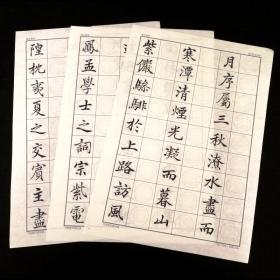 月序屬三秋潦水盡而
寒潭清煙光凝而暮山
紫儼驂騑於上路訪風
鳳孟學士之詞宗紫電
隍枕夷夏之交賓主盡